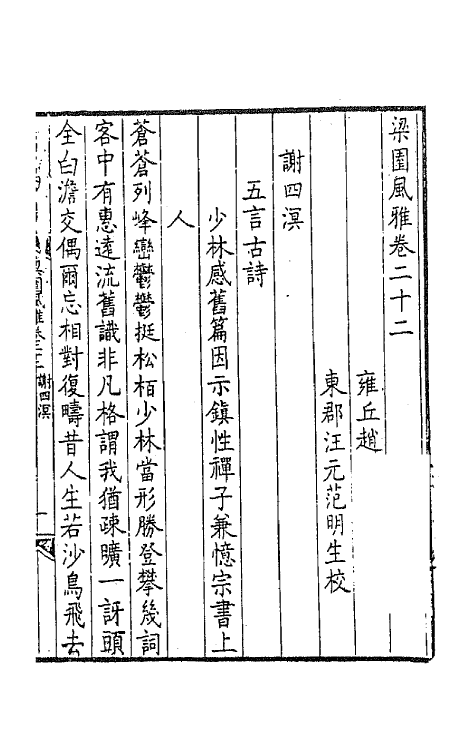 梁園風雅卷二十二
雍丘趙
東郡汪元范明生校
謝四溟
五言古詩
少林感舊篇因示鎮性禪子兼憶宗書上
人
蒼蒼列峰巒鬱鬱挺松栢少林當形勝登攀幾詞
客中有惠遠流舊識非凡格謂我猶疎曠一訝頭
全白澹交偶爾忘相對復疇昔人生若沙鳥飛去
園風雅卷二十二 謝四溟 一